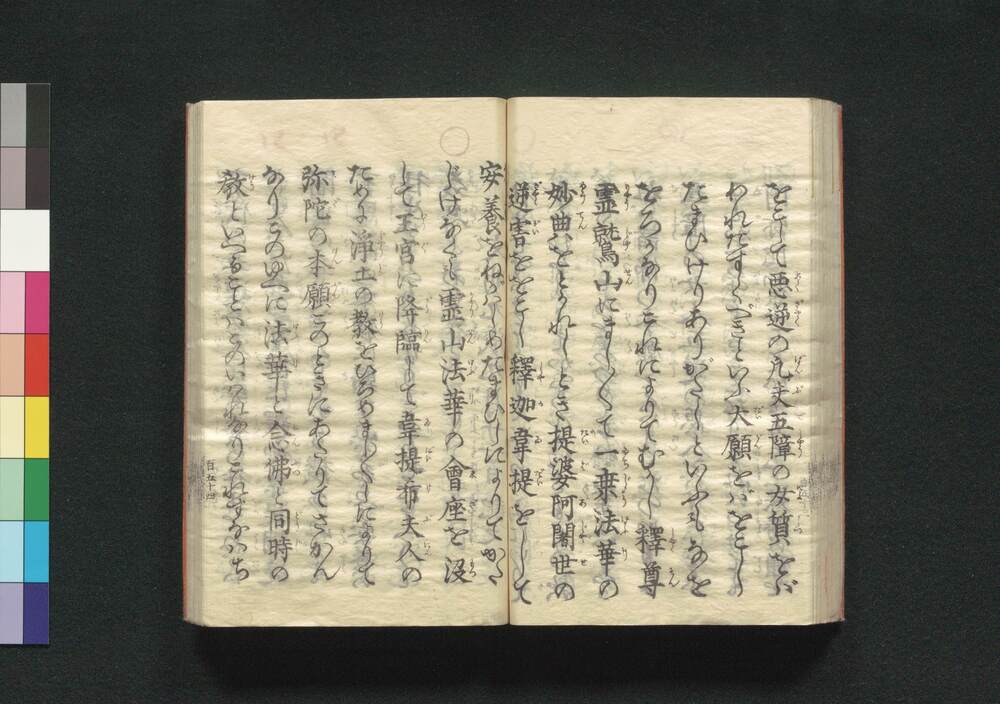 をこして悪逆の凡夫五障の女質をバ
われたすくべきといふ大願をバをこし
たまひけりありがたしといふもなを
をろかなりこれによりてむかし釋尊
霊鷲山にまし〳〵て一乗法華の
妙典をとかれしとき提婆阿闍世の
逆害ををこし釋迦韋提をして
安養をねがハしめたまひしによりてかた
じけなくも霊山法華の會座を没
して王宮に降臨して韋提希夫人の
ために浄土の教をひろめまし〳〵しによりて
弥陀の本願このときにあたりてさかん
なりこのゆへに法華と念佛と同時の
教といへることハこのいはれなりこれすなハち
百五十四